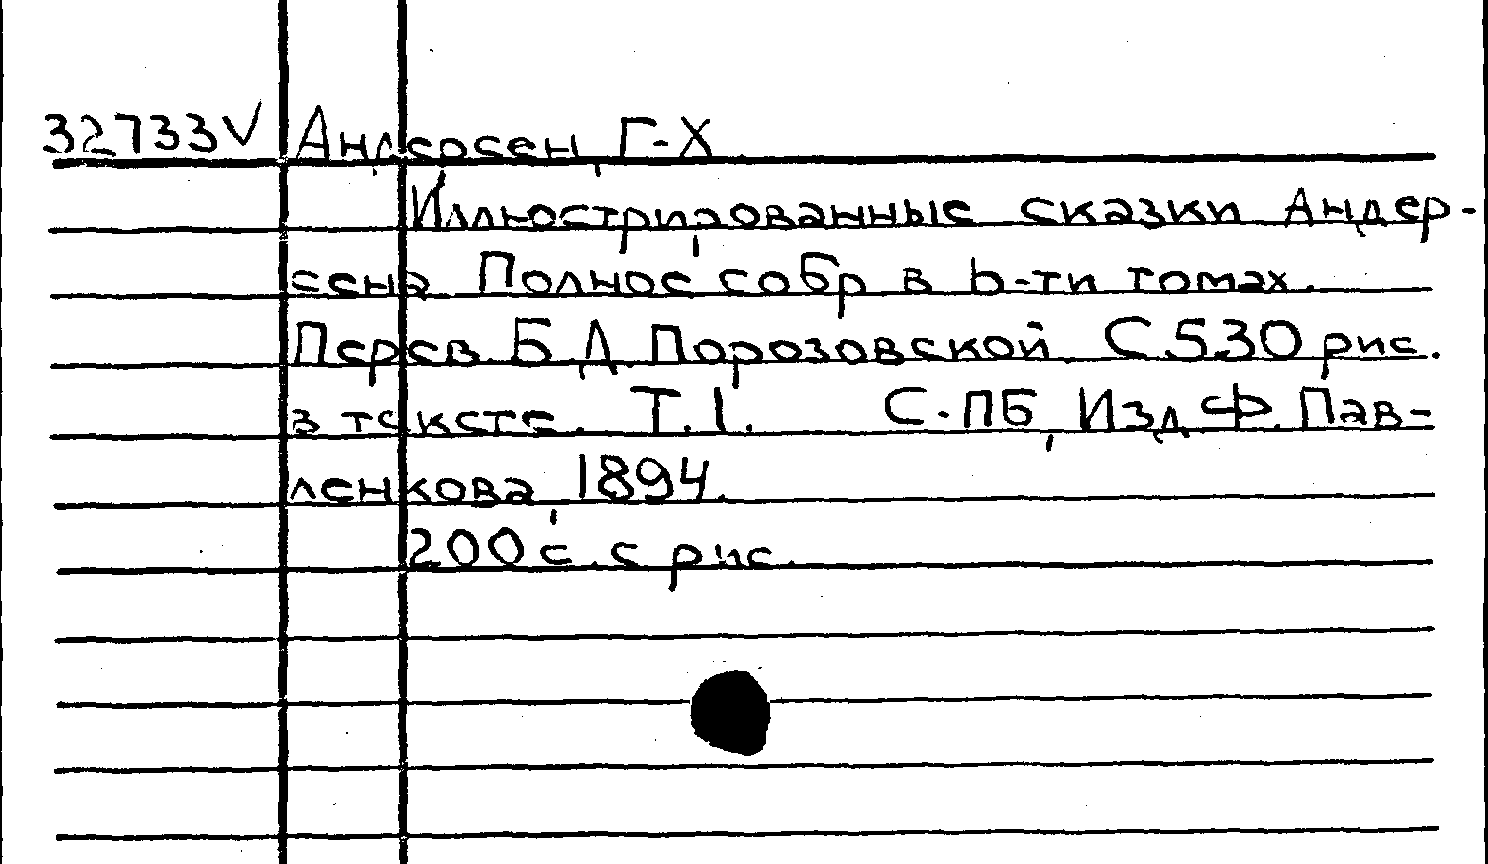 32733V Андерсен, Г-Х.
Иллюстрированные сказки Андер-
сена. Полное собр в 6-ти томах.
Перев. Б. Д. Порозовской. С 530 рис.
в тексте. Т. I. С.-ПБ, Изд. Ф. Пав-
ленкова, 1894.
200 с. с рис.